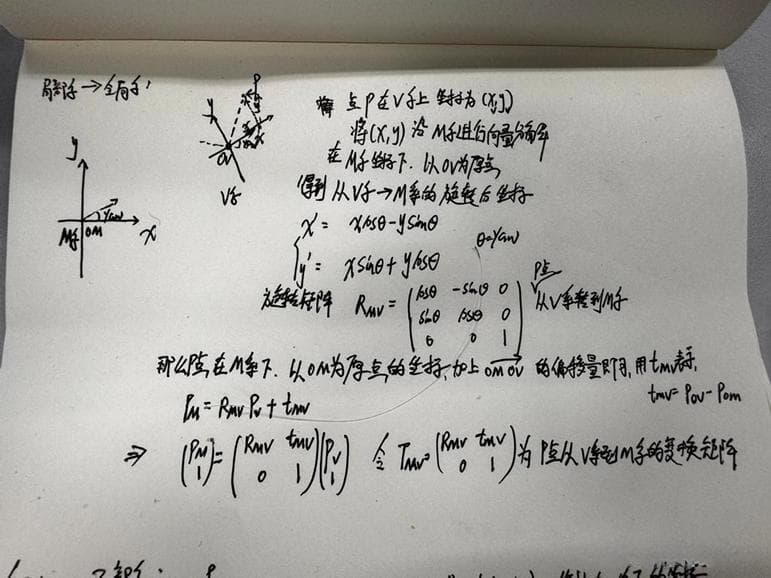 局部系→全局系
y
x
M系
OM
yaw
y
P
OV
V系
解 点P在V系上坐标为(x,y)
将(x,y)沿M系进行向量分解
在M系坐标下.以OV为原点
得到从V系→M系的旋转后坐标
x' = xcosθ-ysinθ
θ=yaw
y' = xsinθ+ycosθ
旋转矩阵 Rmv = (cosθ -sinθ 0
sinθ cosθ 0
0 0 1)
P点
从V系转到M系
那么P点在M系下.以OM为原点的坐标,加上OMOV的偏移量即可,用tmv表示,
tmv = Pov - Pom
Pm = Rmv Pv + tmv
⇒ (Pm 1) = (Rmv tmv 0 1)(Pv 1) 令 Tmv = (Rmv tmv 0 1) 为P点从V系到M系的变换矩阵